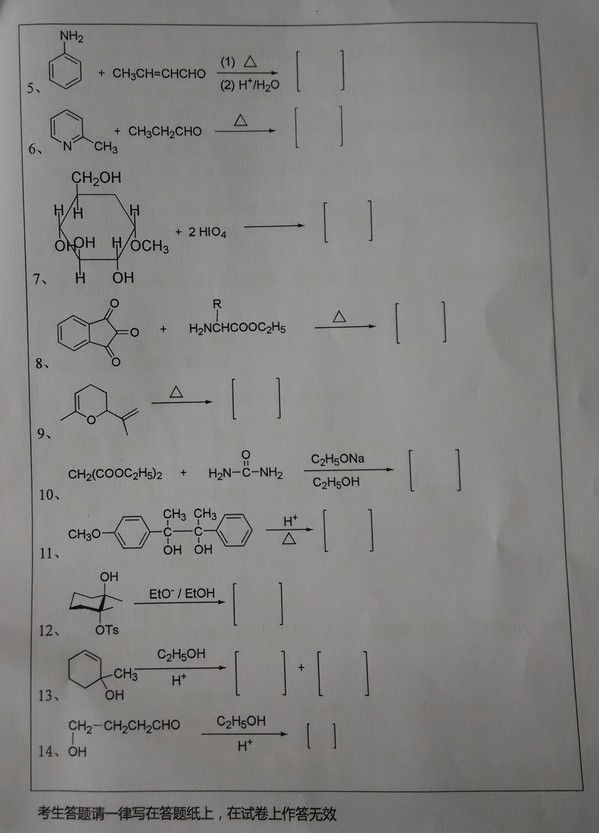 NH₂
5、 + CH₃CH=CHCHO (1) △ (2) H⁺/H₂O [ ]
6、 N CH₃ + CH₃CH₂CHO △ [ ]
CH₂OH
H H H
OH OH H OCH₃ + 2 HIO₄ [ ]
7、 H OH
8、 O O O + R H₂NCHCOOC₂H₅ △ [ ]
9、 O △ [ ]
10、 CH₂(COOC₂H₅)₂ + H₂N-C-NH₂ O C₂H₅ONa C₂H₅OH [ ]
CH₃ CH₃
11、 CH₃O C C H⁺ △ [ ]
OH OH
OH
12、 EtO⁻ / EtOH [ ]
OTs
13、 CH₃ OH C₂H₅OH H⁺ [ ] + [ ]
14、 CH₂-CH₂CH₂CHO OH C₂H₅OH H⁺ [ ]
考生答题请一律写在答题纸上，在试卷上作答无效